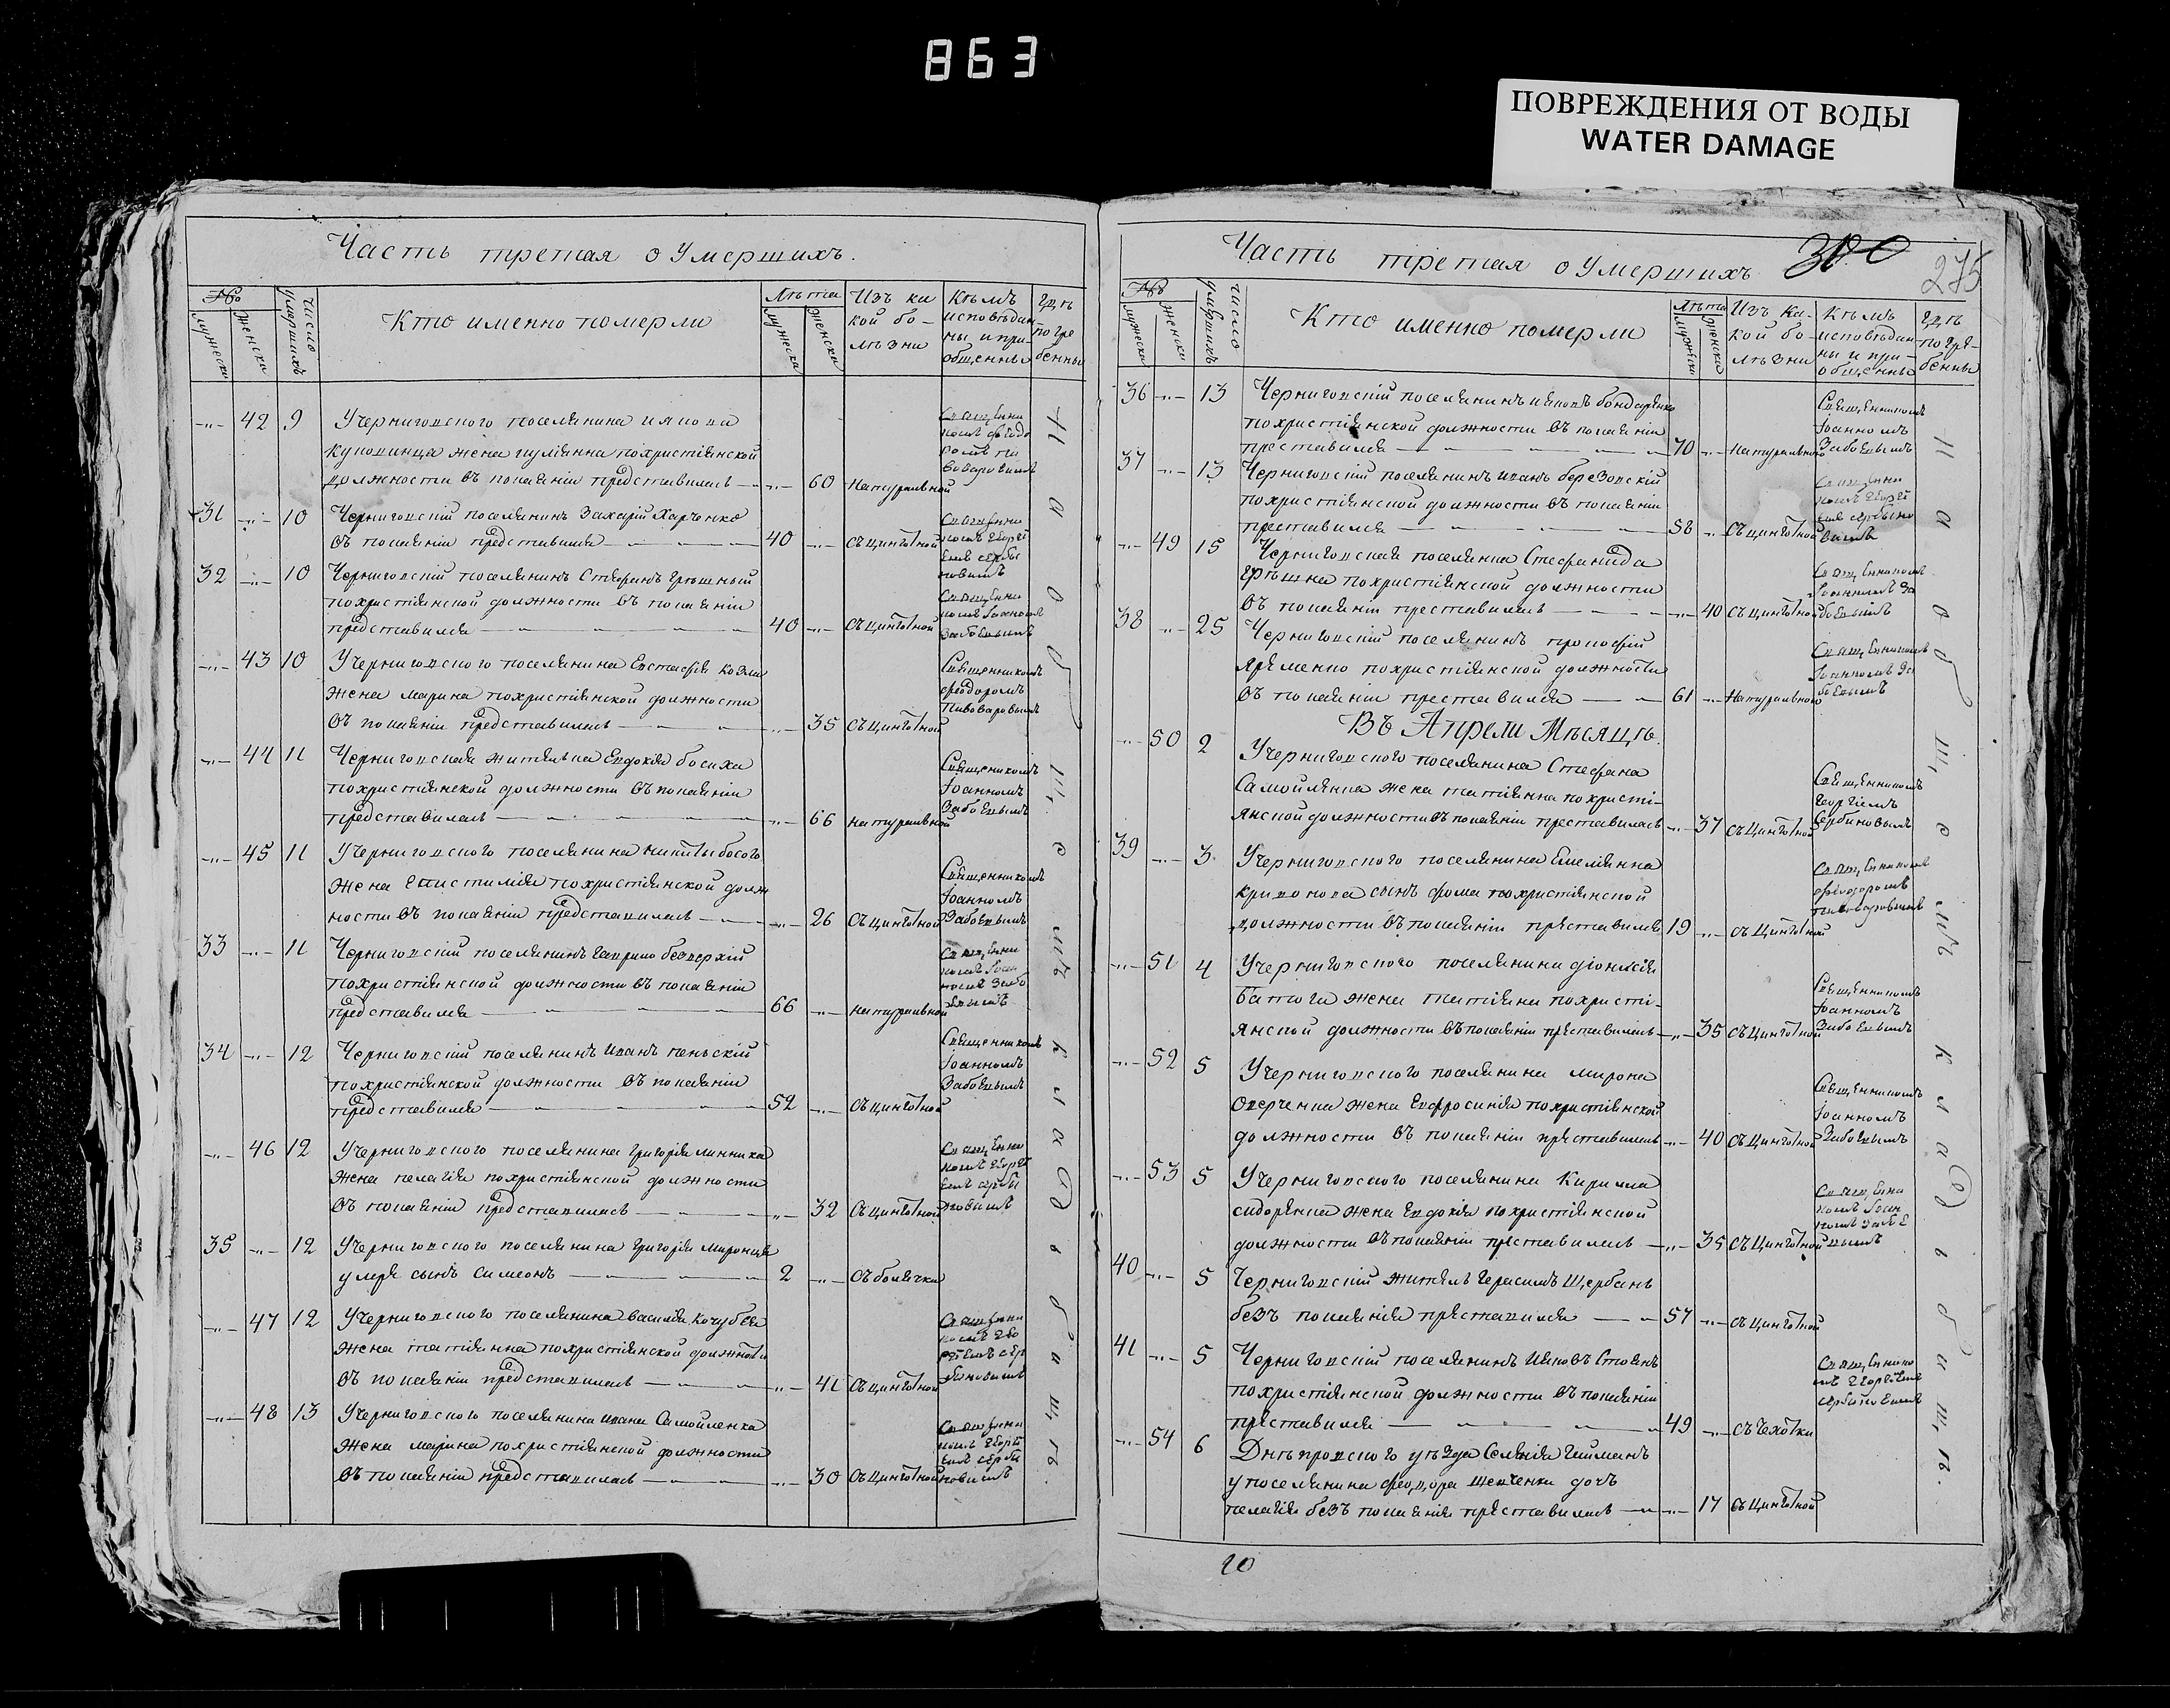 863
ПОВРЕЖДЕНИЯ ОТ ВОДЫ
WATER DAMAGE
Часть третая о Умершихъ.
№
мужески
женски
число умершихъ
Кто именно померли
Лѣта
мужеска
женска
Изъ ка
кой бо-
лѣзни
Кѣмъ
исповѣдан
ны и при-
общенны
Гдѣ
погре
бенны
42 9 Учерниговского поселянина иякова
куповинца жена пуліянна похристіянской
должности въ покаяніи представилась 60 натуральной
Священни
комъ Феодо
ромъ Пи
воваровимъ
31 10 Черниговскій поселянинъ Захарій Харченко
въ покаяніи представился 40 съ цинготной
Священни
комъ Георгі
емъ серби
новимъ
32 10 Черниговскій поселянинъ Стефанъ Грѣшный
похристіянской должности въ покаяніи
представился 40 съ цинготной
Священни
комъ Іоанномъ
Забоевымъ
43 10 Учерниговского поселянина Евстафія Козми
жена марина похристіянской должности
въ покаяніи представилась 35 съ цинготной
Священникомъ
феодоромъ
Пивоваровымъ
44 11 Черниговская жителька Евдокія босиха
похристіянской должности въ покаяніи
представилась 66 натуральной
Священникомъ
Іоанномъ
Забоевымъ
45 11 Учерниговского поселянина никиты босого
жена Епистимія похристіянской долж
ности въ покаяніи представилась 26 съ цинготной
Священникомъ
Іоанномъ
Забоевымъ
33 11 Черниговскій поселянинъ гаврило безверхій
похристіянской должности въ покаяніи
представился 66 натуральной
Священни
комъ Іоан
номъ Забо
евымъ
34 12 Черниговскій поселянинъ иванъ пенскій
похристіянской должности въ покаяніи
представился 52 съ цинготной
Священникомъ
Іоанномъ
Забоевымъ
46 12 Учерниговского поселянина григорія линника
жена пелагія похристіянской должности
въ покаяніи представилась 32 съ цинготной
Священни
комъ Георгі
емъ серби
новимъ
35 12 Учерниговского поселянина григорія миронця
умре сынъ симеонъ 2 съ болячки
47 12 Учерниговского поселянина василія кочубея
жена татіянна похристіянской должности
въ покаяніи представилась 41 съ цинготной
Священни
комъ Гео
ргіемъ сер
биновымъ
48 13 Учерниговского поселянина ивана Самойленка
жена маріна похристіянской должности
въ покаяніи представилась 30 съ цинготной
Священни
комъ Георгі
емъ серби
новимъ
На обще мъ кладъбищѣ.
Часть третая о Умершихъ 300
275
№
мужески
женски
число умершихъ
Кто именно померли
Лѣта
мужески
женски
Изъ ка-
кой бо-
лѣзни
Кѣмъ
исповѣдан-
ны и при-
общенны
Гдѣ
погре-
бенны
36 13 Черниговскій поселянинъ ияковъ бондаренко
похристіянской должности въ покаяніи
преставился 70 натуральной
Священникомъ
Іоанномъ
Забоевымъ
37 13 Черниговскій поселянинъ иванъ березовскій
похристіянской должности въ покаяніи
преставился 58 съ цинготной
Священни
комъ Георгі
емъ сербино
вимъ
49 15 Черниговская поселянка Стефанида
грѣшна похристіянской должности
въ покаяніи преставилась 40 съ цинготной
Священникомъ
Іоанномъ За
боевымъ
38 25 Черниговскій поселянинъ прокофій
яременко похристіянской должности
въ покаяніи преставился 61 натуральной
Священникомъ
Іоанномъ За
боевымъ
Въ Апрели Мѣсяцѣ.
50 2 Учерниговского поселянина Стефана
Самойленка жена татіянна похристі-
янской должности въ покаяніи преставилась 37 съ цинготной
Священникомъ
Георгіемъ
Сербиновымъ
39 3 Учерниговского поселянина Емеліянна
кривоноса сынъ фома похристіянской
должности въ покаяніи преставился 19 съ цинготной
Священникомъ
феодоромъ
пивоваровымъ
51 4 Учерниговского поселянина діонисія
батога жена татіяна похристі-
янской должности въ покаяніи преставилась 35 съ цинготной
Священникомъ
Іоанномъ
Забоевымъ
52 5 Учерниговского поселянина мирона
оверченка жена Евфросинія похристіянской
должности въ покаяніи преставилась 40 съ цинготной
Священникомъ
Іоанномъ
Забоевымъ
53 5 Учерниговского поселянина Кирилла
сидоренка жена Евдокія похристіянской
должности въ покаяніи преставилась 35 съ цинготной
Священни
комъ Іоан
номъ Забое
вымъ
40 5 Черниговскій житель герасимъ Щербань
безъ покаянія преставился 57 съ цинготной
41 5 Черниговскій поселянинъ Ияковъ Стоянъ
похристіянской должности въ покаяніи
преставился 49 съ чехотки
Священнико
мъ Георгіемъ
сербиновымъ
54 6 Днѣпровского уѣзда Селенія Гайманъ
у поселянина феодора шевченка дочь
пелагія безъ покаянія преставилась 17 съ цинготной
На обще мъ кладъбищѣ.
20